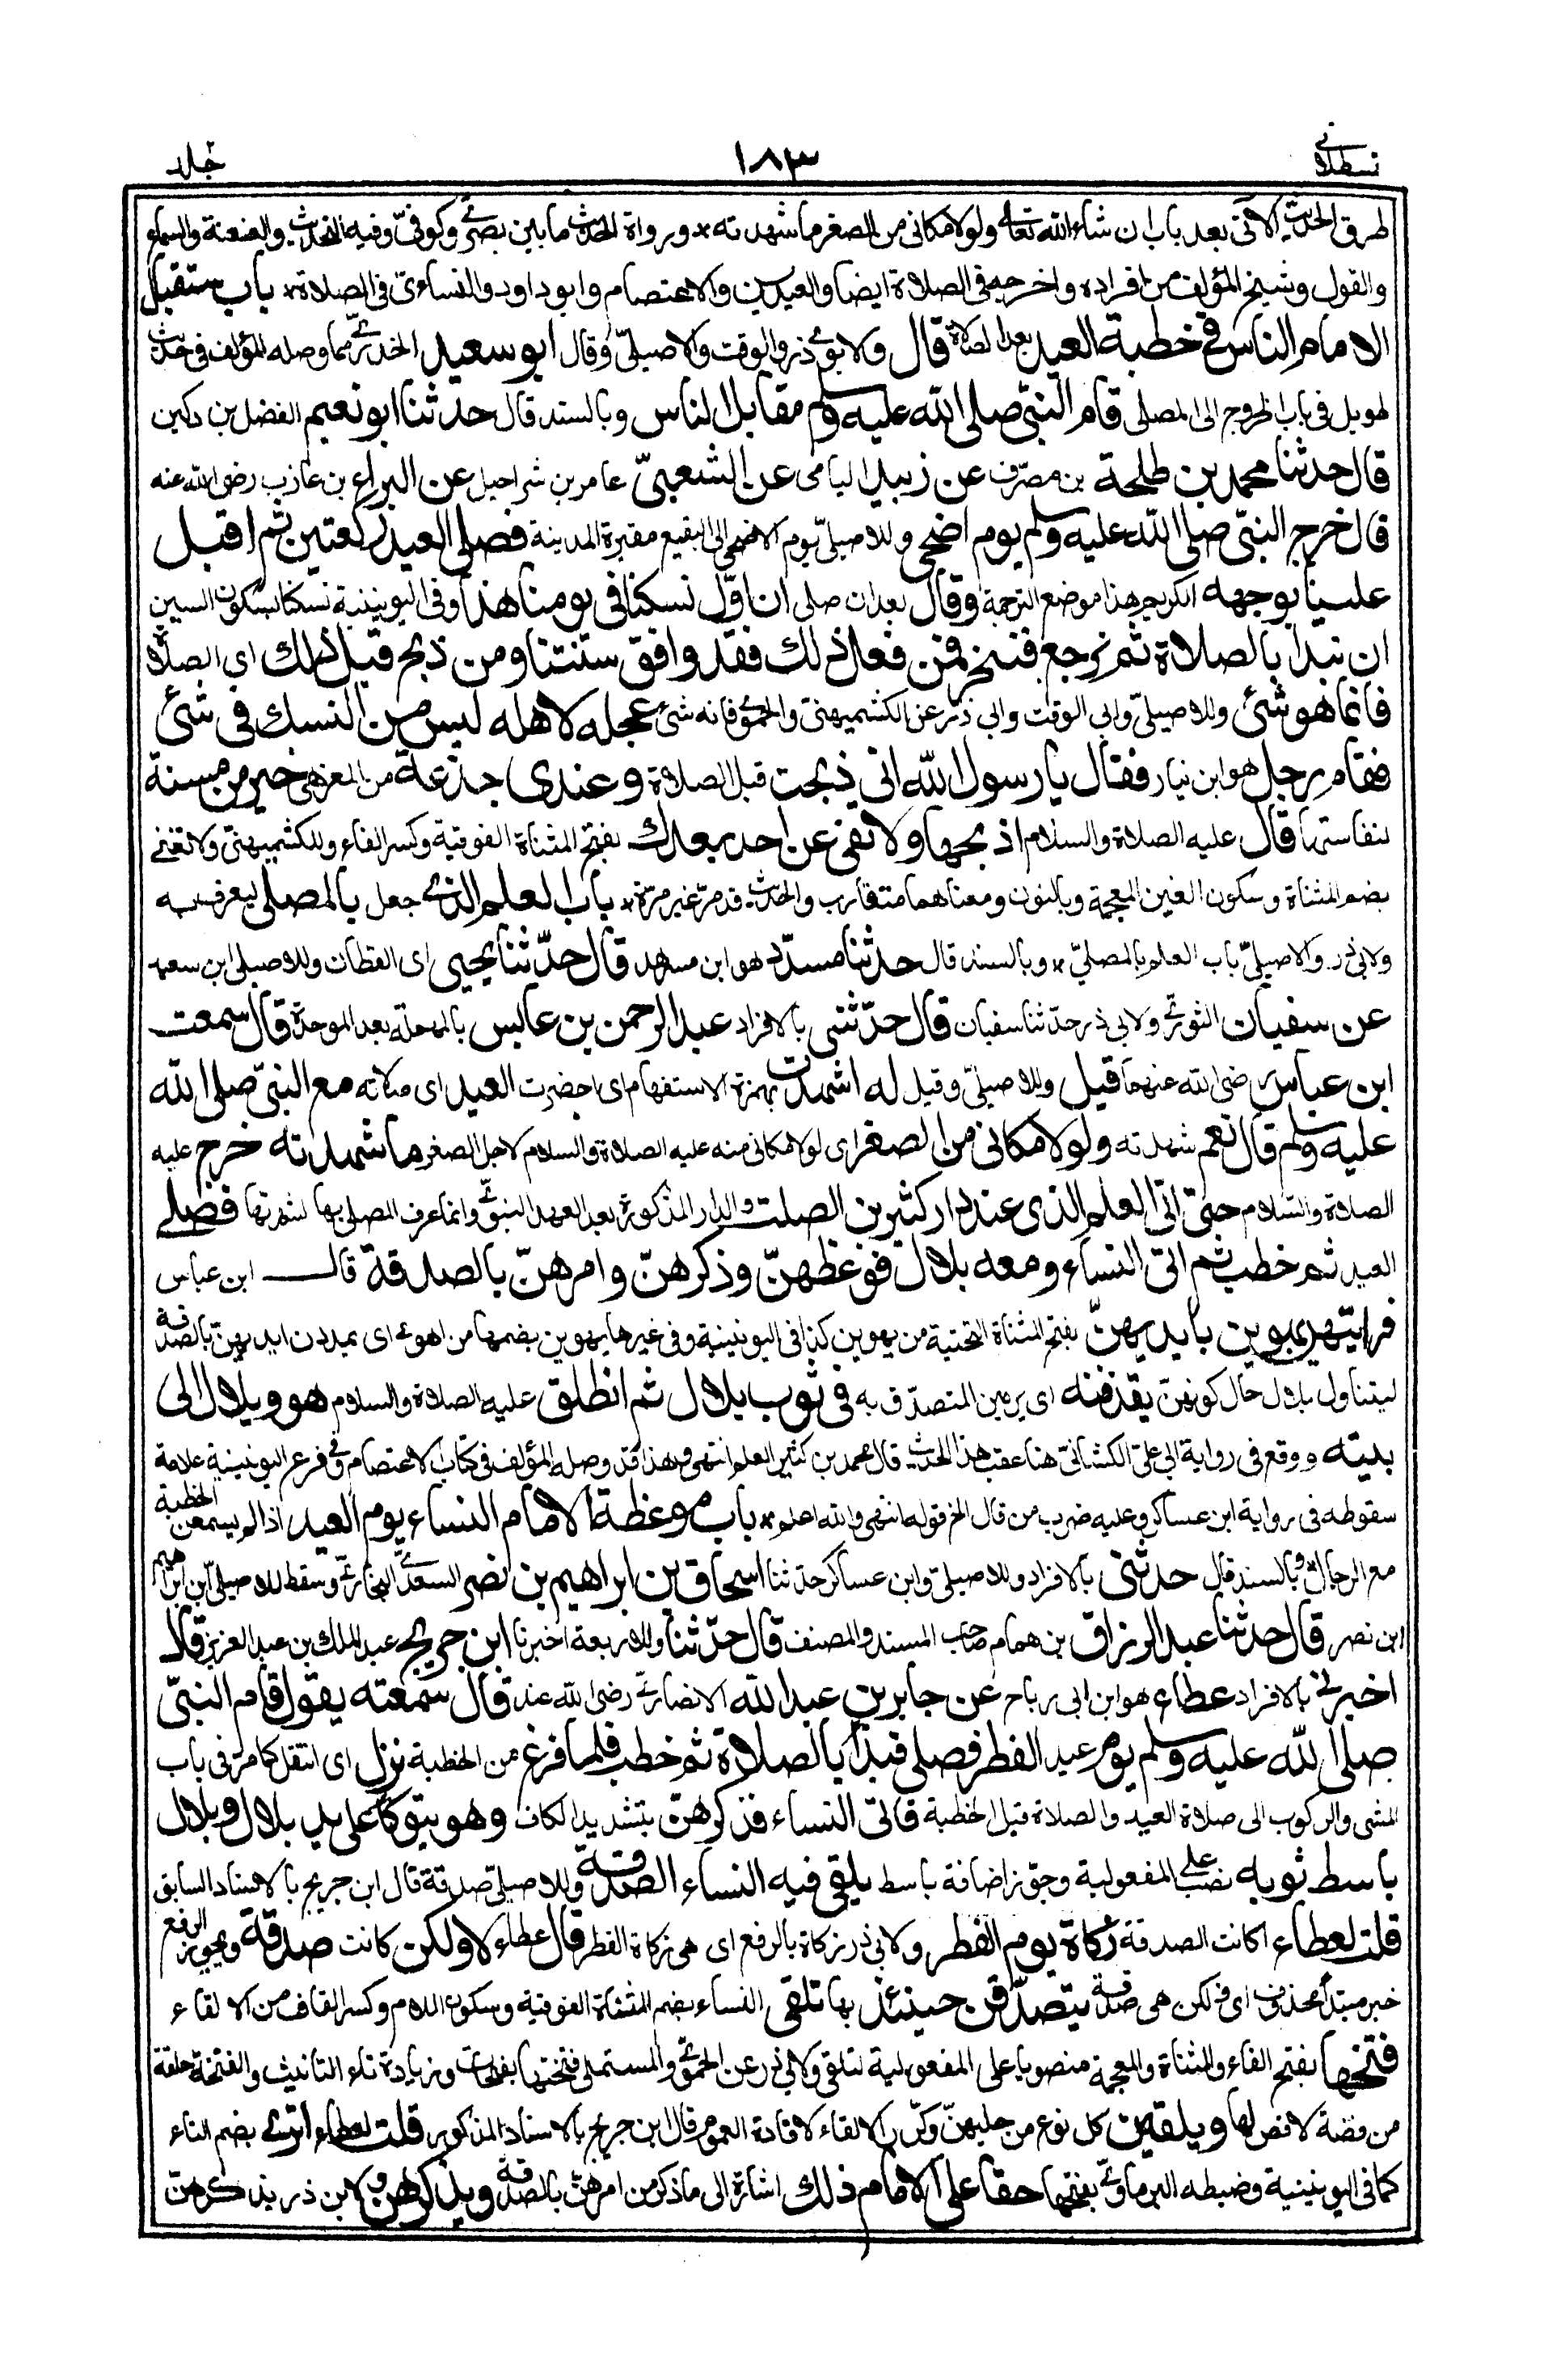 قسطلانى
١٨٣
جلد
طرق الحديث الآتى بعد باب ان شاء الله تعالى ولولا مكانى من الصغر ما شهدته * ورواة الحديث ما بين بصرىّ وكوفىّ وفيه التحديث والعنعنة والسماع
والقول وشيخ المؤلف من افراده واخرجه فى الصلاة ايضا والعيدين والاعتصام وابو داود والنساءىّ فى الصلاة * باب استقبال
الامام الناس فى خطبة العيد بعد الصلاة قال ولابوى ذر والوقت والاصيلىّ وقال ابو سعيد الخدرىّ مما وصله المؤلف فى حديث
طويل فى باب الخروج الى المصلى قام النبىّ صلى الله عليه وسلم مقابل الناس وبالسند قال حدثنا ابو نعيم الفضل بن دكين
قال حدثنا محمد بن طلحة بن مصرّف عن زبيد اليامى عن الشعبىّ عامر بن شراحيل عن البراء بن عازب رضى الله عنه
قال خرج النبىّ صلى الله عليه وسلم يوم اضحى وللاصيلىّ يوم الاضحى الى البقيع مقبرة المدينة فصلى العيد ركعتين ثم اقبل
علينا بوجهه الكريم هذا موضع الترجمة وقال بعد ان صلى ان اوّل نسكنا فى يومنا هذا وفى اليونينية نسكنا بسكون السين
ان نبدأ بالصلاة ثم نرجع فننحر فمن فعل ذلك فقد وافق سنتنا ومن ذبح قبل ذلك اى الصلاة
فانما هو شئ وللاصيلىّ وابى الوقت وابى ذر عن الكشميهنىّ والحموى فانه شئ عجله لاهله ليس من النسك فى شئ
فقام رجل هو ابن نيار فقال يا رسول الله انى ذبحت قبل الصلاة وعندى جذعة من المعز هى خير من مسنة
لنفاستها قال عليه الصلاة والسلام اذبحها ولا تفى عن احد بعدك بفتح المثناة الفوقية وكسر الفاء وللكشميهنىّ ولا تغنى
بضم المثناة وسكون الغين المعجمة وبالنون ومعناهما متقارب والحديث قد مرّ غير مرّة * باب العلم الذى جعل بالمصلى ليعرف به
ولابى ذر والاصيلىّ باب العلم بالمصلىّ * وبالسند قال حدثنا مسدّد هو ابن مسرهد قال حدّثنا يحيى اى القطان وللاصيلى ابن سعيد
عن سفيان الثورىّ ولابى ذر حدّثنا سفيان قال حدّثنى بالافراد عبد الرحمن بن عابس بالمهملة بعد الموحدة قال سمعت
ابن عباس رضى الله عنهما قيل وللاصيلىّ وقيل له اشهدت بهمزة الاستفهام اى احضرت العيد اى صلاته مع النبىّ صلى الله
عليه وسلم قال نعم شهدته ولولا مكانى من الصغر اى لولا مكانى منه عليه الصلاة والسلام لاجل الصغر ما شهدته خرج عليه
الصلاة والسلام حتى اتى العلم الذى عند دار كثير بن الصلت والدار المذكورة بعد العهد النبوىّ وانما عرف المصلى بها لشهرتها فصلى
العيد ثم خطب ثم اتى النساء ومعه بلال فوعظهنّ وذكرهنّ وامرهنّ بالصدقة قال ابن عباس
فرايتهنّ يهوين بايديهنّ بفتح المثناة التحتية من يهوين كذا فى اليونينية وفى غيرها يهوين بضمها من اهوى اى يمددن ايديهنّ بالصدقة
ليتناول بلال حال كونهنّ يقذفنه اى يرمين المتصدّق به فى ثوب بلال ثم انطلق عليه الصلاة والسلام هو وبلال الى
بيته ووقع فى رواية ابى على الكشانىّ هنا عقب هذا الحديث قال محمد بن كثير العلم انتهى وهذا قد وصله المؤلف فى كتاب الاعتصام وفى فرع اليونينية علامة
سقوطه فى رواية ابن عساكر وعليه ضرب من قال الى قوله انتهى والله اعلم * باب موعظة الامام النساء يوم العيد اذا لم يسمعن الخطبة
مع الرجال * وبالسند قال حدثنى بالافراد وللاصيلىّ وابن عساكر حدثنا اسحاق بن ابراهيم بن نصر السعدىّ البخارىّ وسقط للاصيلىّ ابن ابراهيم
ابن نصر قال حدثنا عبد الرزاق بن همام صاحب المسند والمصنف قال حدّثنا وللاربعة اخبرنا ابن جريج عبد الملك بن عبد العزيز قال
اخبرنى بالافراد عطاء هو ابن ابى رباح عن جابر بن عبد الله الانصارىّ رضى الله عنه قال سمعته يقول قام النبىّ
صلى الله عليه وسلم يوم عيد الفطر فصلى فبدأ بالصلاة ثم خطب فلما فرغ من الخطبة نزل اى انتقل كما مرّ فى باب
المشى والركوب الى صلاة العيد والصلاة قبل الخطبة فاتى النساء فذكرهنّ بتشديد الكاف وهو يتوكأ على يد بلال وبلال
باسط ثوبه نصب على المفعولية وجوّز اضافة باسط يلقى فيه النساء الصدقة وللاصيلىّ صدقة قال ابن جريج بالاسناد السابق
قلت لعطاء اكانت الصدقة زكاة يوم الفطر ولابى ذر زكاة بالرفع اى هى زكاة الفطر قال عطاء لا ولكن كانت صدقة ويجوز الرفع
خبر مبتدأ محذوف اى ولكن هى صدقة يتصدّقن حينئذ بها تلقى النساء بضم المثناة الفوقية وسكون اللام وكسر القاف من الالقاء
فتخها بفتح الفاء والمثناة والمعجمة منصوبا على المفعولية لتلقى ولابى ذر عن الحموىّ والمستملى فتختها بفتحات وزيادة تاء التانيث والفتخة حلقة
من فضة لا فص لها ويلقين كل نوع من حليهنّ وكرّر الالقاء لافادة العموم قال ابن جريج بالاسناد المذكور قلت لعطاء اترى بضم التاء
كما فى اليونينية وضبطه البرماوىّ بفتحها حقا على الامام ذلك اشارة الى ما ذكر من امرهنّ بالصدقة ويذكرهن ولابن ذر يذكرهنّ